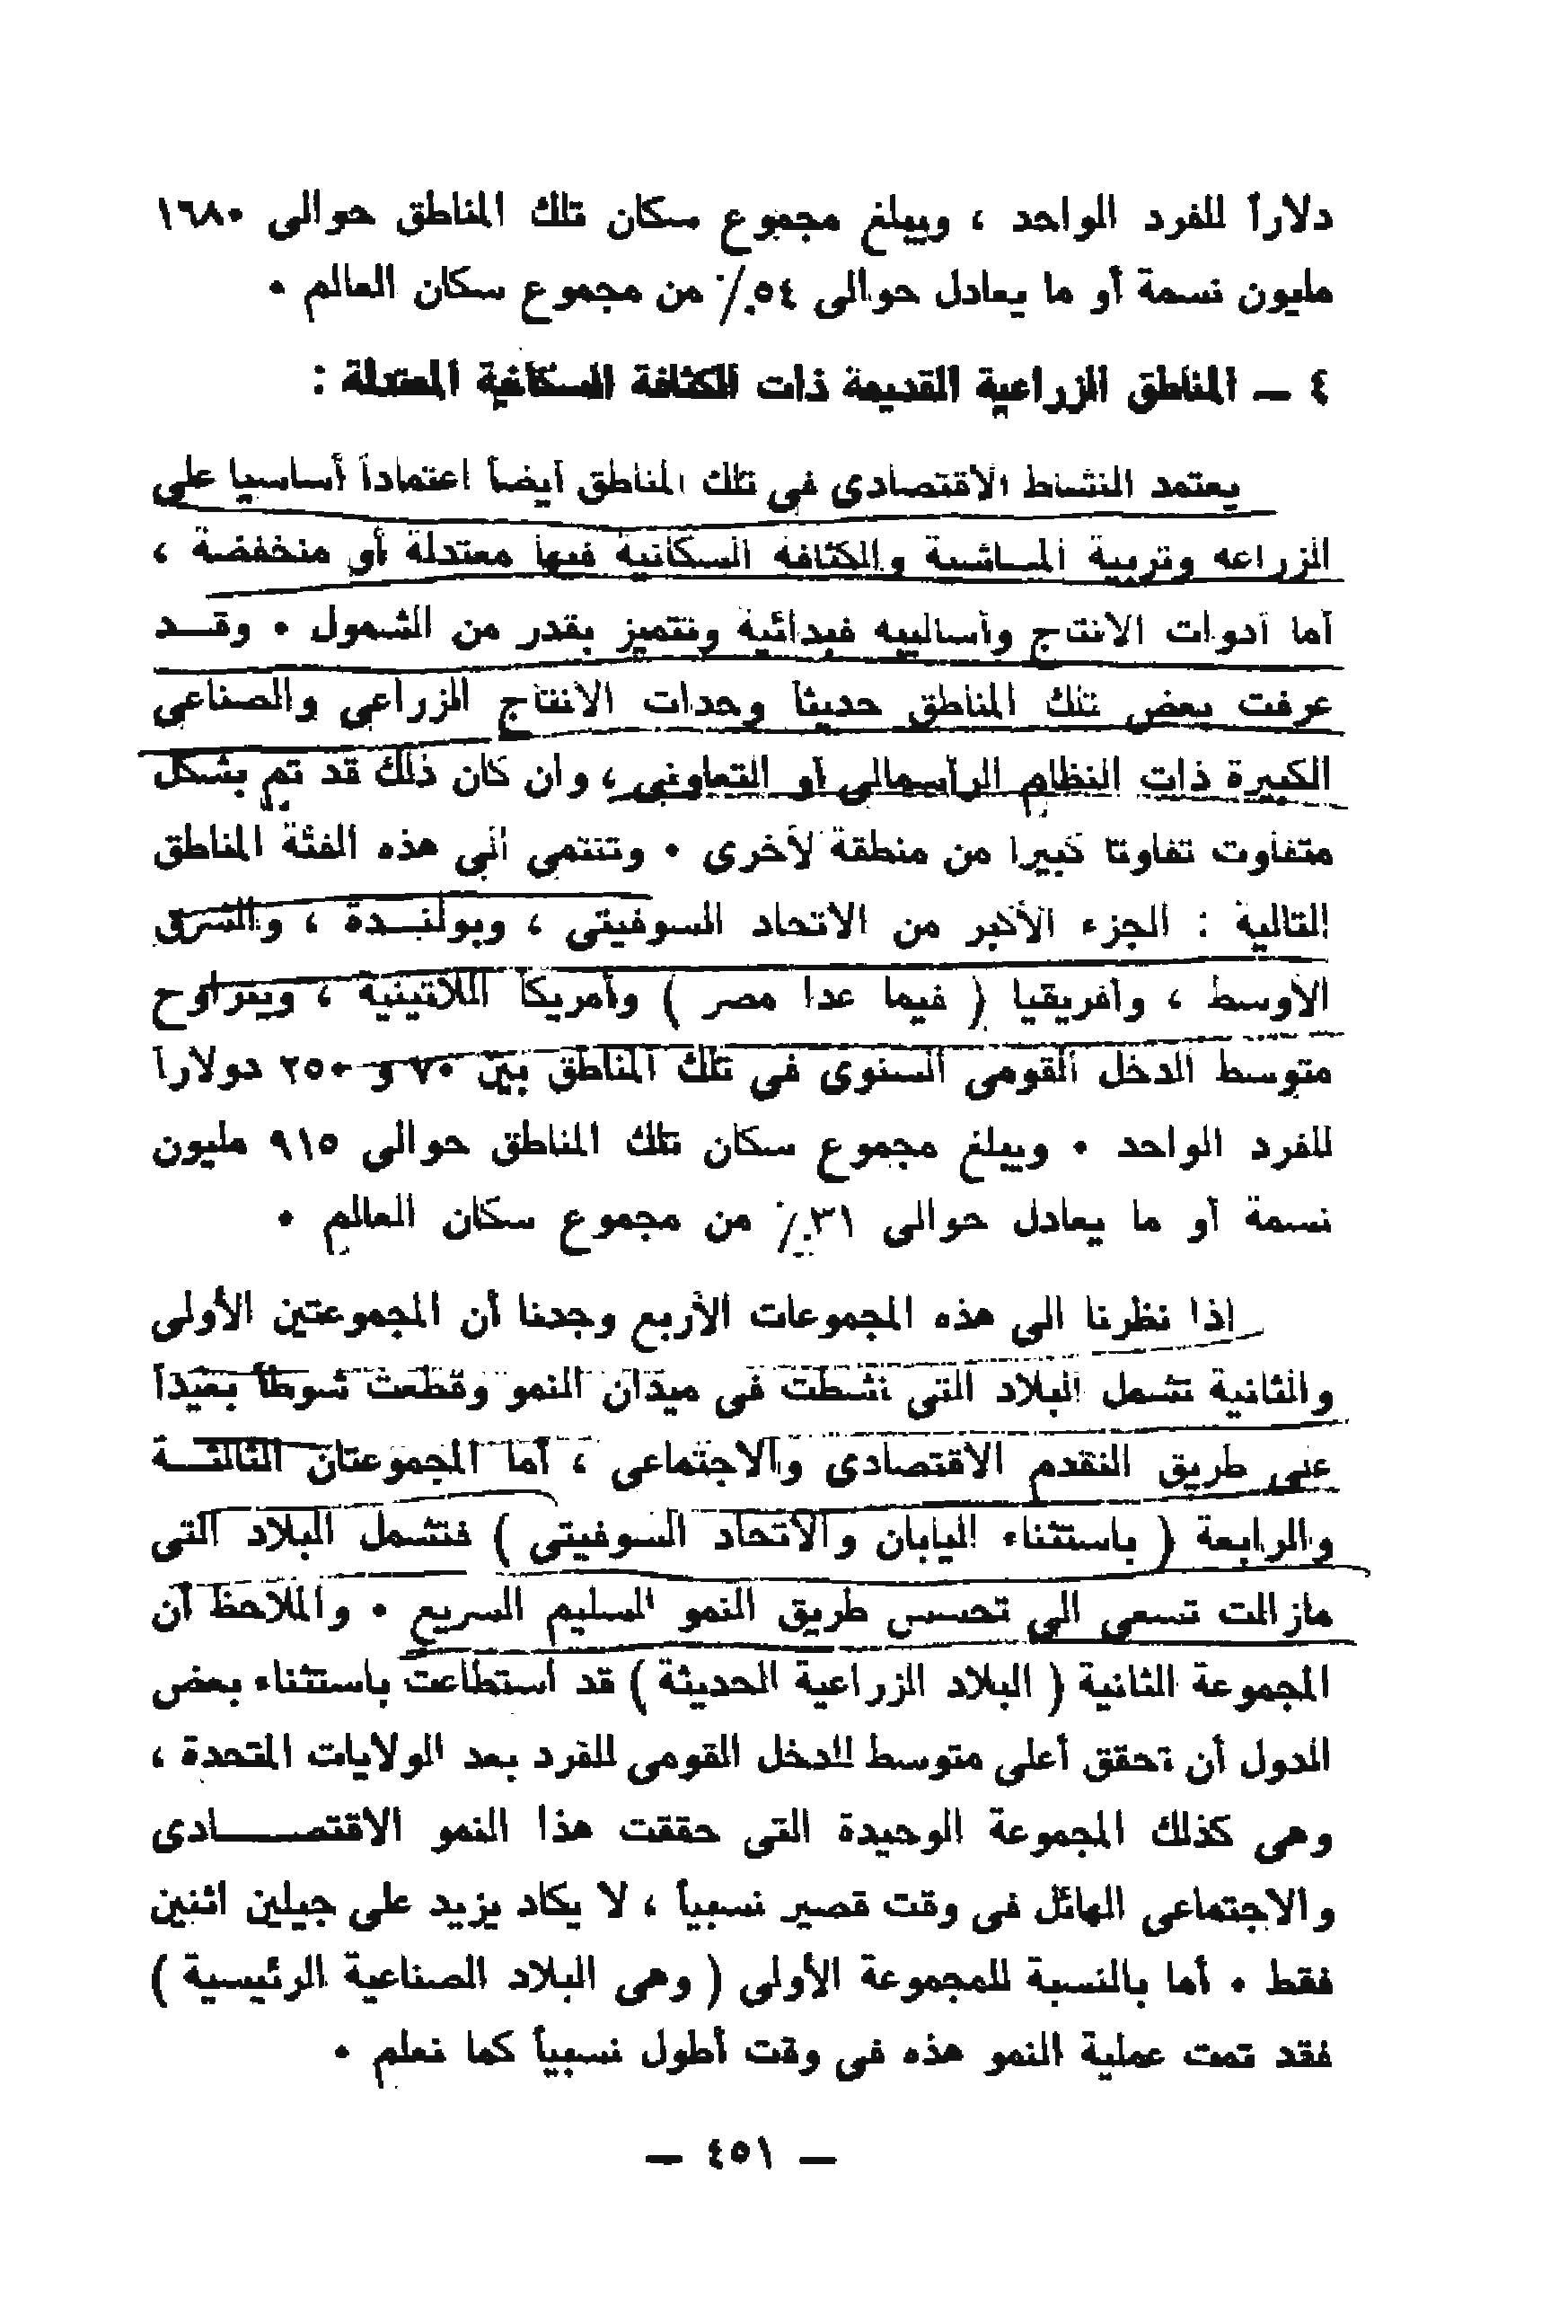 دلاراً للفرد الواحد ، ويبلغ مجموع سكان تلك المناطق حوالى ١٦٨٠
مليون نسمة أو ما يعادل حوالى ٥٤٪ من مجموع سكان العالم ٠
٤ — المناطق الزراعية القديمة ذات الكثافة السكانية المعتدلة :
يعتمد النشاط الاقتصادى فى تلك المناطق أيضاً اعتماداً أساسيا على
الزراعه وتربية المـاشية والكثافة السكانية فيها معتدلة أو منخفضة ،
أما أدوات الانتاج وأساليبه فبدائية وتتميز بقدر من الشمول ٠ وقــد
عرفت بعض تلك المناطق حديثاً وحدات الانتاج الزراعى والصناعى
الكبيرة ذات النظام الرأسمالى أو التعاونى ، وان كان ذلك قد تم بشكل
متفاوت تفاوتا كبيرا من منطقة لأخرى ٠ وتنتمى الى هذه الفئة المناطق
التالية : الجزء الأكبر من الاتحاد السوفيتى ، وبولنـدة ، والشرق
الأوسط ، وأفريقيا ( فيما عدا مصر ) وأمريكا اللاتينية ، ويتراوح
متوسط الدخل القومى السنوى فى تلك المناطق بين ٧٠ و ٢٥٠ دولاراً
للفرد الواحد ٠ ويبلغ مجموع سكان تلك المناطق حوالى ٩١٥ مليون
نسمة أو ما يعادل حوالى ٣١٪ من مجموع سكان العالم ٠
اذا نظرنا الى هذه المجموعات الأربع وجدنا أن المجموعتين الأولى
والثانية تشمل البلاد التى نشطت فى ميدان النمو وقطعت شوطاً بعيداً
على طريق التقدم الاقتصادى والاجتماعى ، أما المجموعتان الثالثــة
والرابعة ( باستثناء اليابان والاتحاد السوفيتى ) فتشمل البلاد التى
مازالت تسعى الى تحسس طريق النمو السليم السريع ٠ والملاحظ أن
المجموعة الثانية ( البلاد الزراعية الحديثة ) قد استطاعت باستثناء بعض
الدول أن تحقق أعلى متوسط للدخل القومى للفرد بعد الولايات المتحدة ،
وهى كذلك المجموعة الوحيدة التى حققت هذا النمو الاقتصــــادى
والاجتماعى الهائل فى وقت قصير نسبياً ، لا يكاد يزيد على جيلين اثنين
فقط ٠ أما بالنسبة للمجموعة الأولى ( وهى البلاد الصناعية الرئيسية )
فقد تمت عملية النمو هذه فى وقت أطول نسبياً كما نعلم ٠
— ٤٥١ —